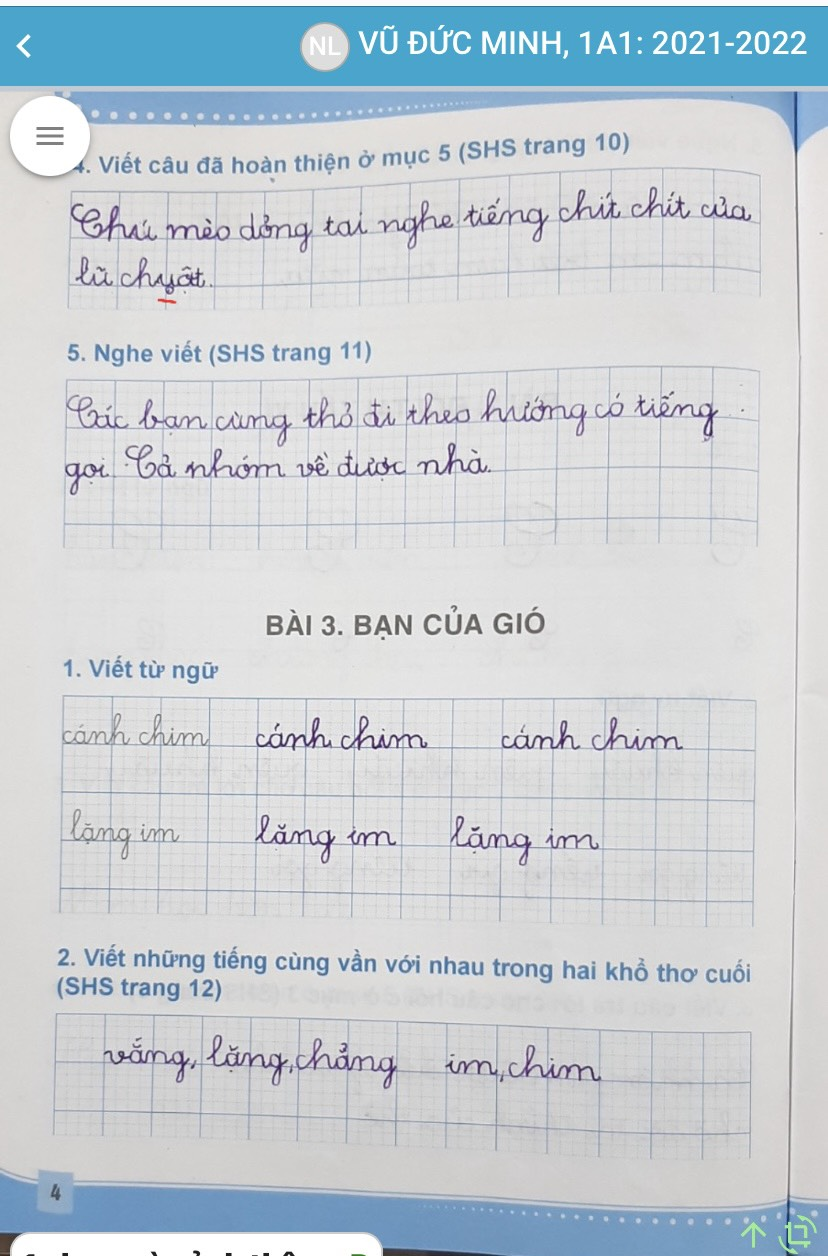 NL VŨ ĐỨC MINH, 1A1: 2021-2022
4. Viết câu đã hoàn thiện ở mục 5 (SHS trang 10)
Chú mèo dỏng tai nghe tiếng chít chít của
lũ chuột.
5. Nghe viết (SHS trang 11)
Các bạn cùng thỏ đi theo hướng có tiếng
gọi. Cả nhóm về được nhà.
BÀI 3. BẠN CỦA GIÓ
1. Viết từ ngữ
cánh chim cánh chim cánh chim
lặng im lặng im lặng im
2. Viết những tiếng cùng vần với nhau trong hai khổ thơ cuối
(SHS trang 12)
vắng, lặng, chẳng im, chim
4